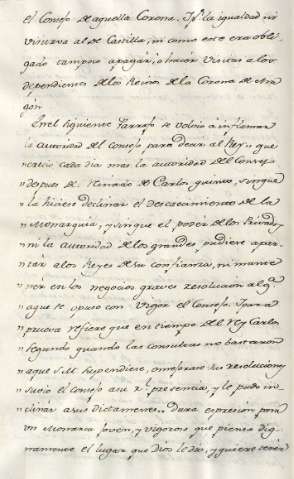 el Consejo de aquella Corona. Ni la igualdad ni
visitava al de Castilla, ni como este era obli-
gado tampoco apagar, o hacer visitas alos
dependientes delos Reinos dela Corona de Ara-
gon.
Enel siguiente Parrafo se volvio à inflamar
la autoridad del Consejo para decir al Rey, que
crecio cada dia mas la autoridad del Consejo
" despues de Reinado de Carlos quinto, sinque
" la hiciese declinar el descaecimiento de la
" Monarquia, y sinque el poder de los Privados,
" ni la autoridad de los grandes pudiese apar-
" tar alos Reyes desu confianza, ni mante-
" ner en los negocios graves resolucion alg.ª
" aque se opuso con vigor el Consejo. Para
" prueva refiere que en tiempo del Rey Carlos
" segundo quando las consultas no bastaron
" aque S.M. suspendiese, o mejorase su resolucion,
" subio el Consejo asu R.l presencia, y le pudo in-
" clinar asu dictamen.. Dura expresion para
un Monarca Joven, y vigoroso que piensa dig-
namente el lugar que Dios le dio, y quiere tener